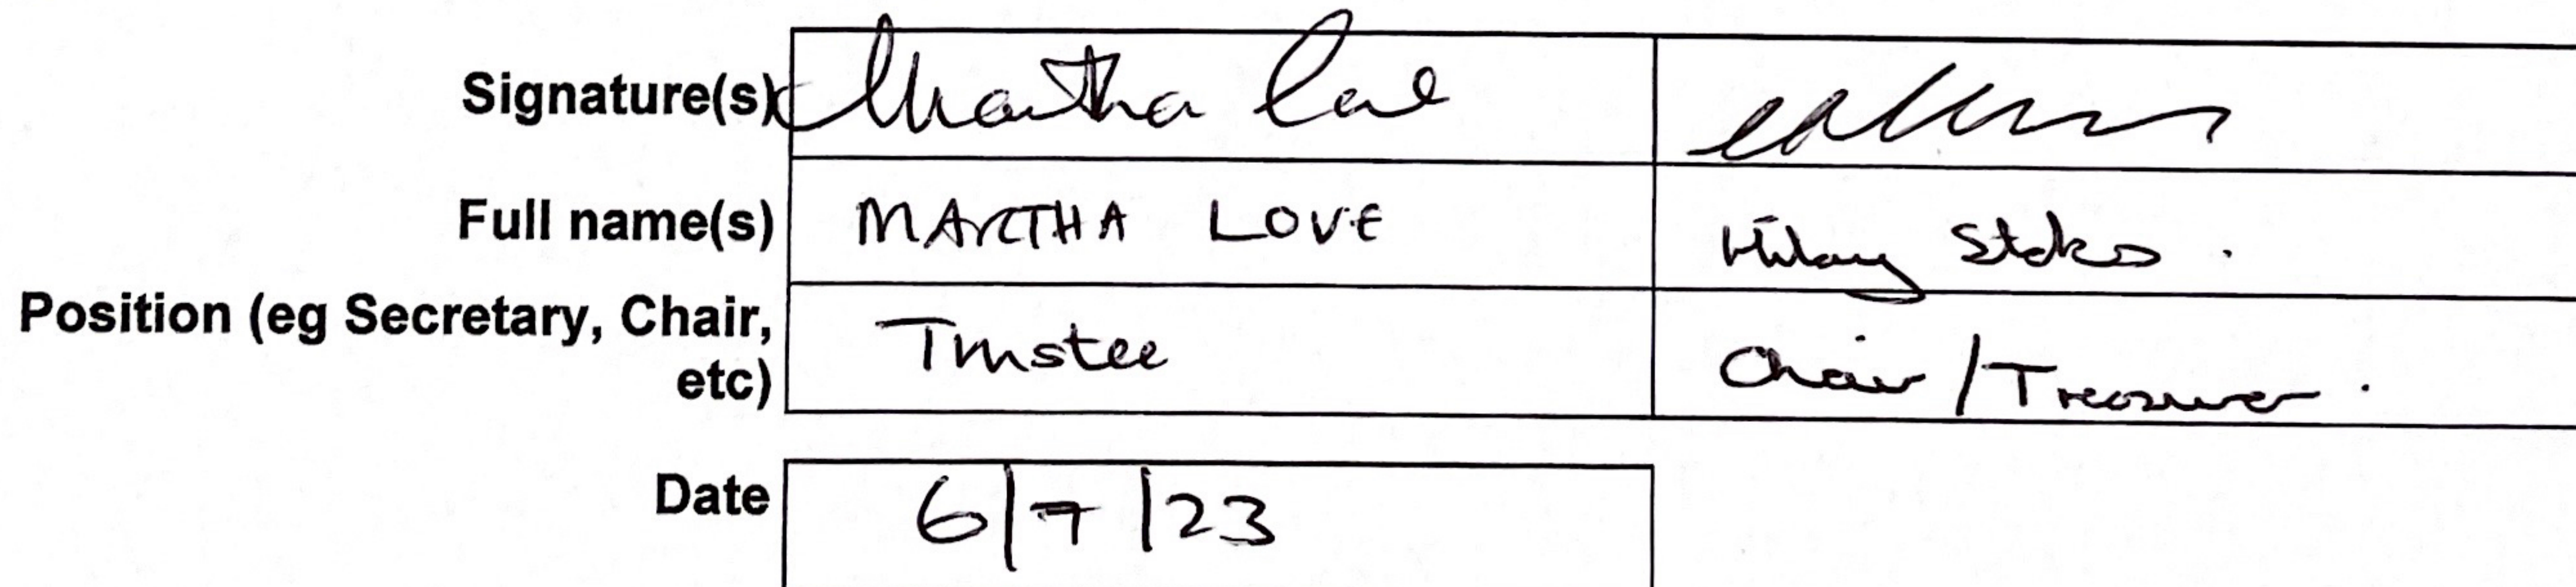 Signature(s) Martha Love
Full name(s) MARTHA LOVE Hilary Stokes .
Position (eg Secretary, Chair,
etc) Trustee Chair / Treasurer .
Date 6/7/23